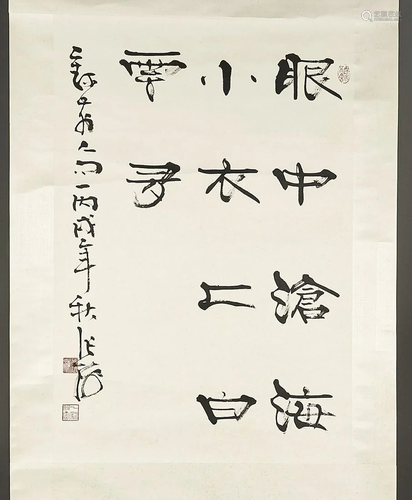 眼中滄海
小衣上白
雲多
丙戌年秋